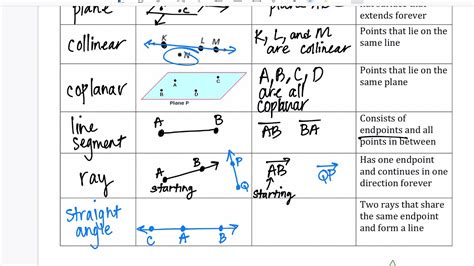 plane
C
extends forever
collinear
K L M
N
K, L, and M
are collinear
Points that lie on the
same line
coplanar
A
C
B
D
Plane P
A, B, C, D
are all
coplanar
Points that lie on the
same plane
line
segment
A B
AB BA
Consists of
endpoints and all
points in between
ray
A B
starting
P
Q
AB QP
starting
Has one endpoint
and continues in one
direction forever
straight
angle
C A B
Two rays that share
the same endpoint
and form a line